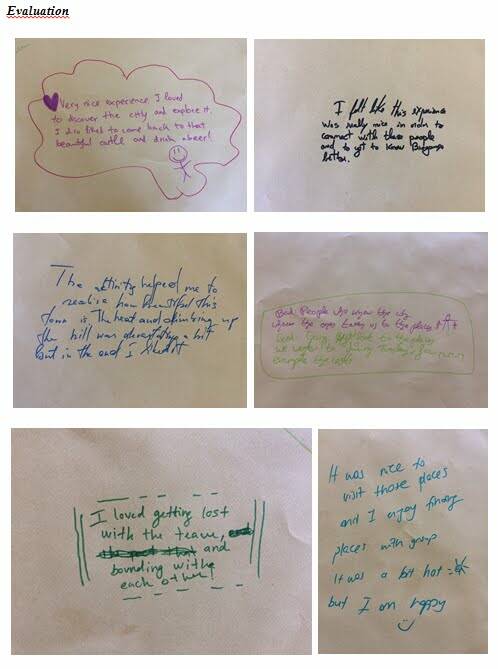 Evaluation
Very nice experience. I loved
to discover the city and explore it.
I also liked to come back to that
beautiful castle and drink a beer!
I felt like this experience
was really nice in order to
connect with these people
and to get to know
better.
The activity helped me to
realise how beautiful this
town is. The heat and climbing up
the hill was devastating a bit
but in the end I
Bad: People who know the city
where the ones to the places
Good:
I loved getting lost
with the team,
and
bounding withe
each other!
It was nice to
visit those places
and I enjoy finding
places with group
It was a bit hot =
but I am happy